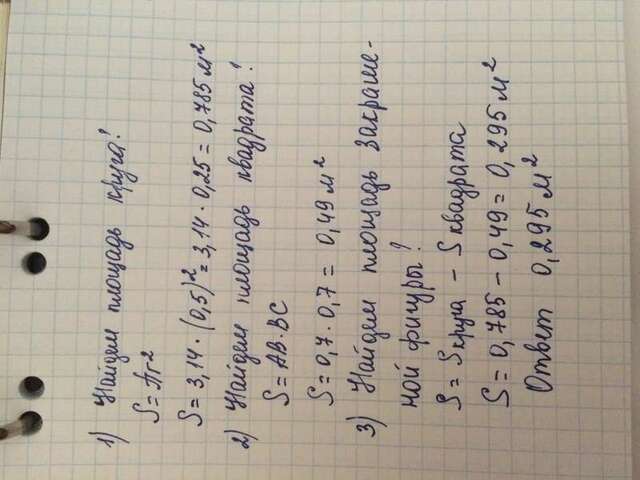 1) Найдем площадь круга!
S = Пr²
S = 3,14 · (0,5)² = 3,14 · 0,25 = 0,785 м²
2) Найдем площадь квадрата!
S = AB · BC
S = 0,7 · 0,7 = 0,49 м²
3) Найдем площадь закраше-
ной фигуры!
S = S круга - S квадрата
S = 0,785 - 0,49 = 0,295 м²
Ответ 0,295 м²